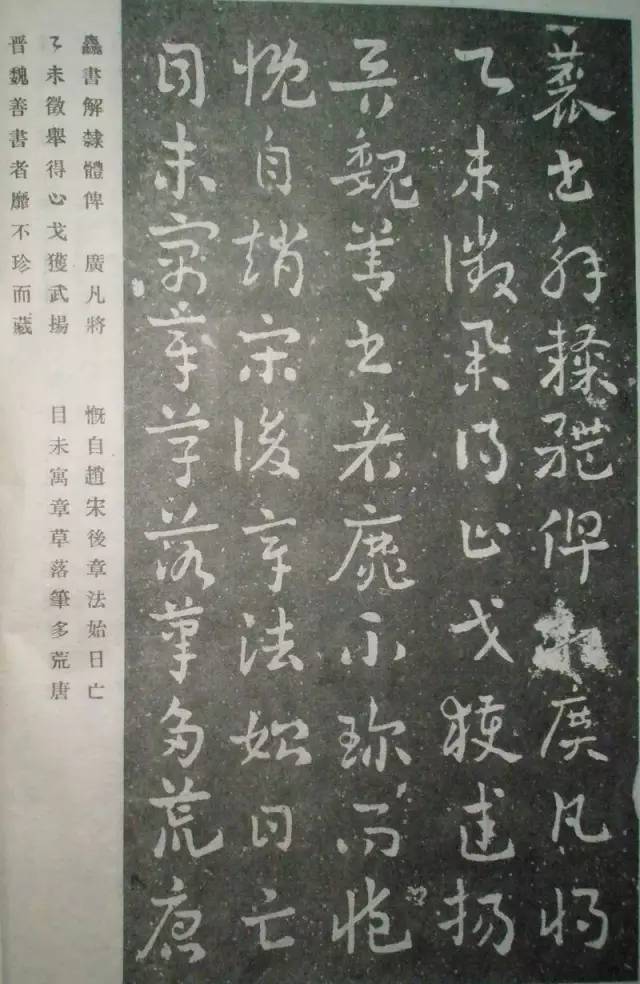 蠡書解隸體俾廣凡將
乙未徵舉得止戈獲武揚
晉魏善書者靡不珍而藏
慨自趙宋後章法始日亡
目未寓章草落筆多荒唐
蠡書解隸體俾 廣凡將 慨自趙宋後章法始日亡
乙未徵舉得心戈獲武揚 目未寓章草落筆多荒唐
晉魏善書者靡不珍而藏